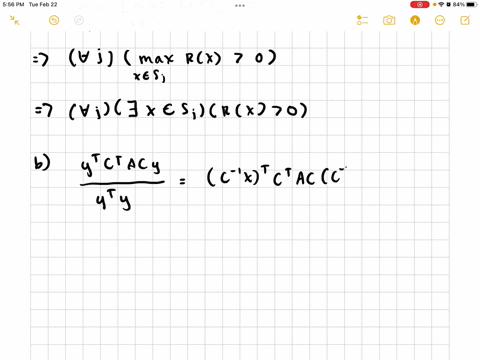 5:56 PM Tue Feb 22
84%
=> (∀ j) ( max R(x) > 0 )
x ∈ Sj
=> (∀ j) ( ∃ x ∈ Sj ) ( R(x) > 0 )
b) yᵀ Cᵀ A C y / yᵀ y = ( C⁻¹ x )ᵀ Cᵀ A C ( C⁻